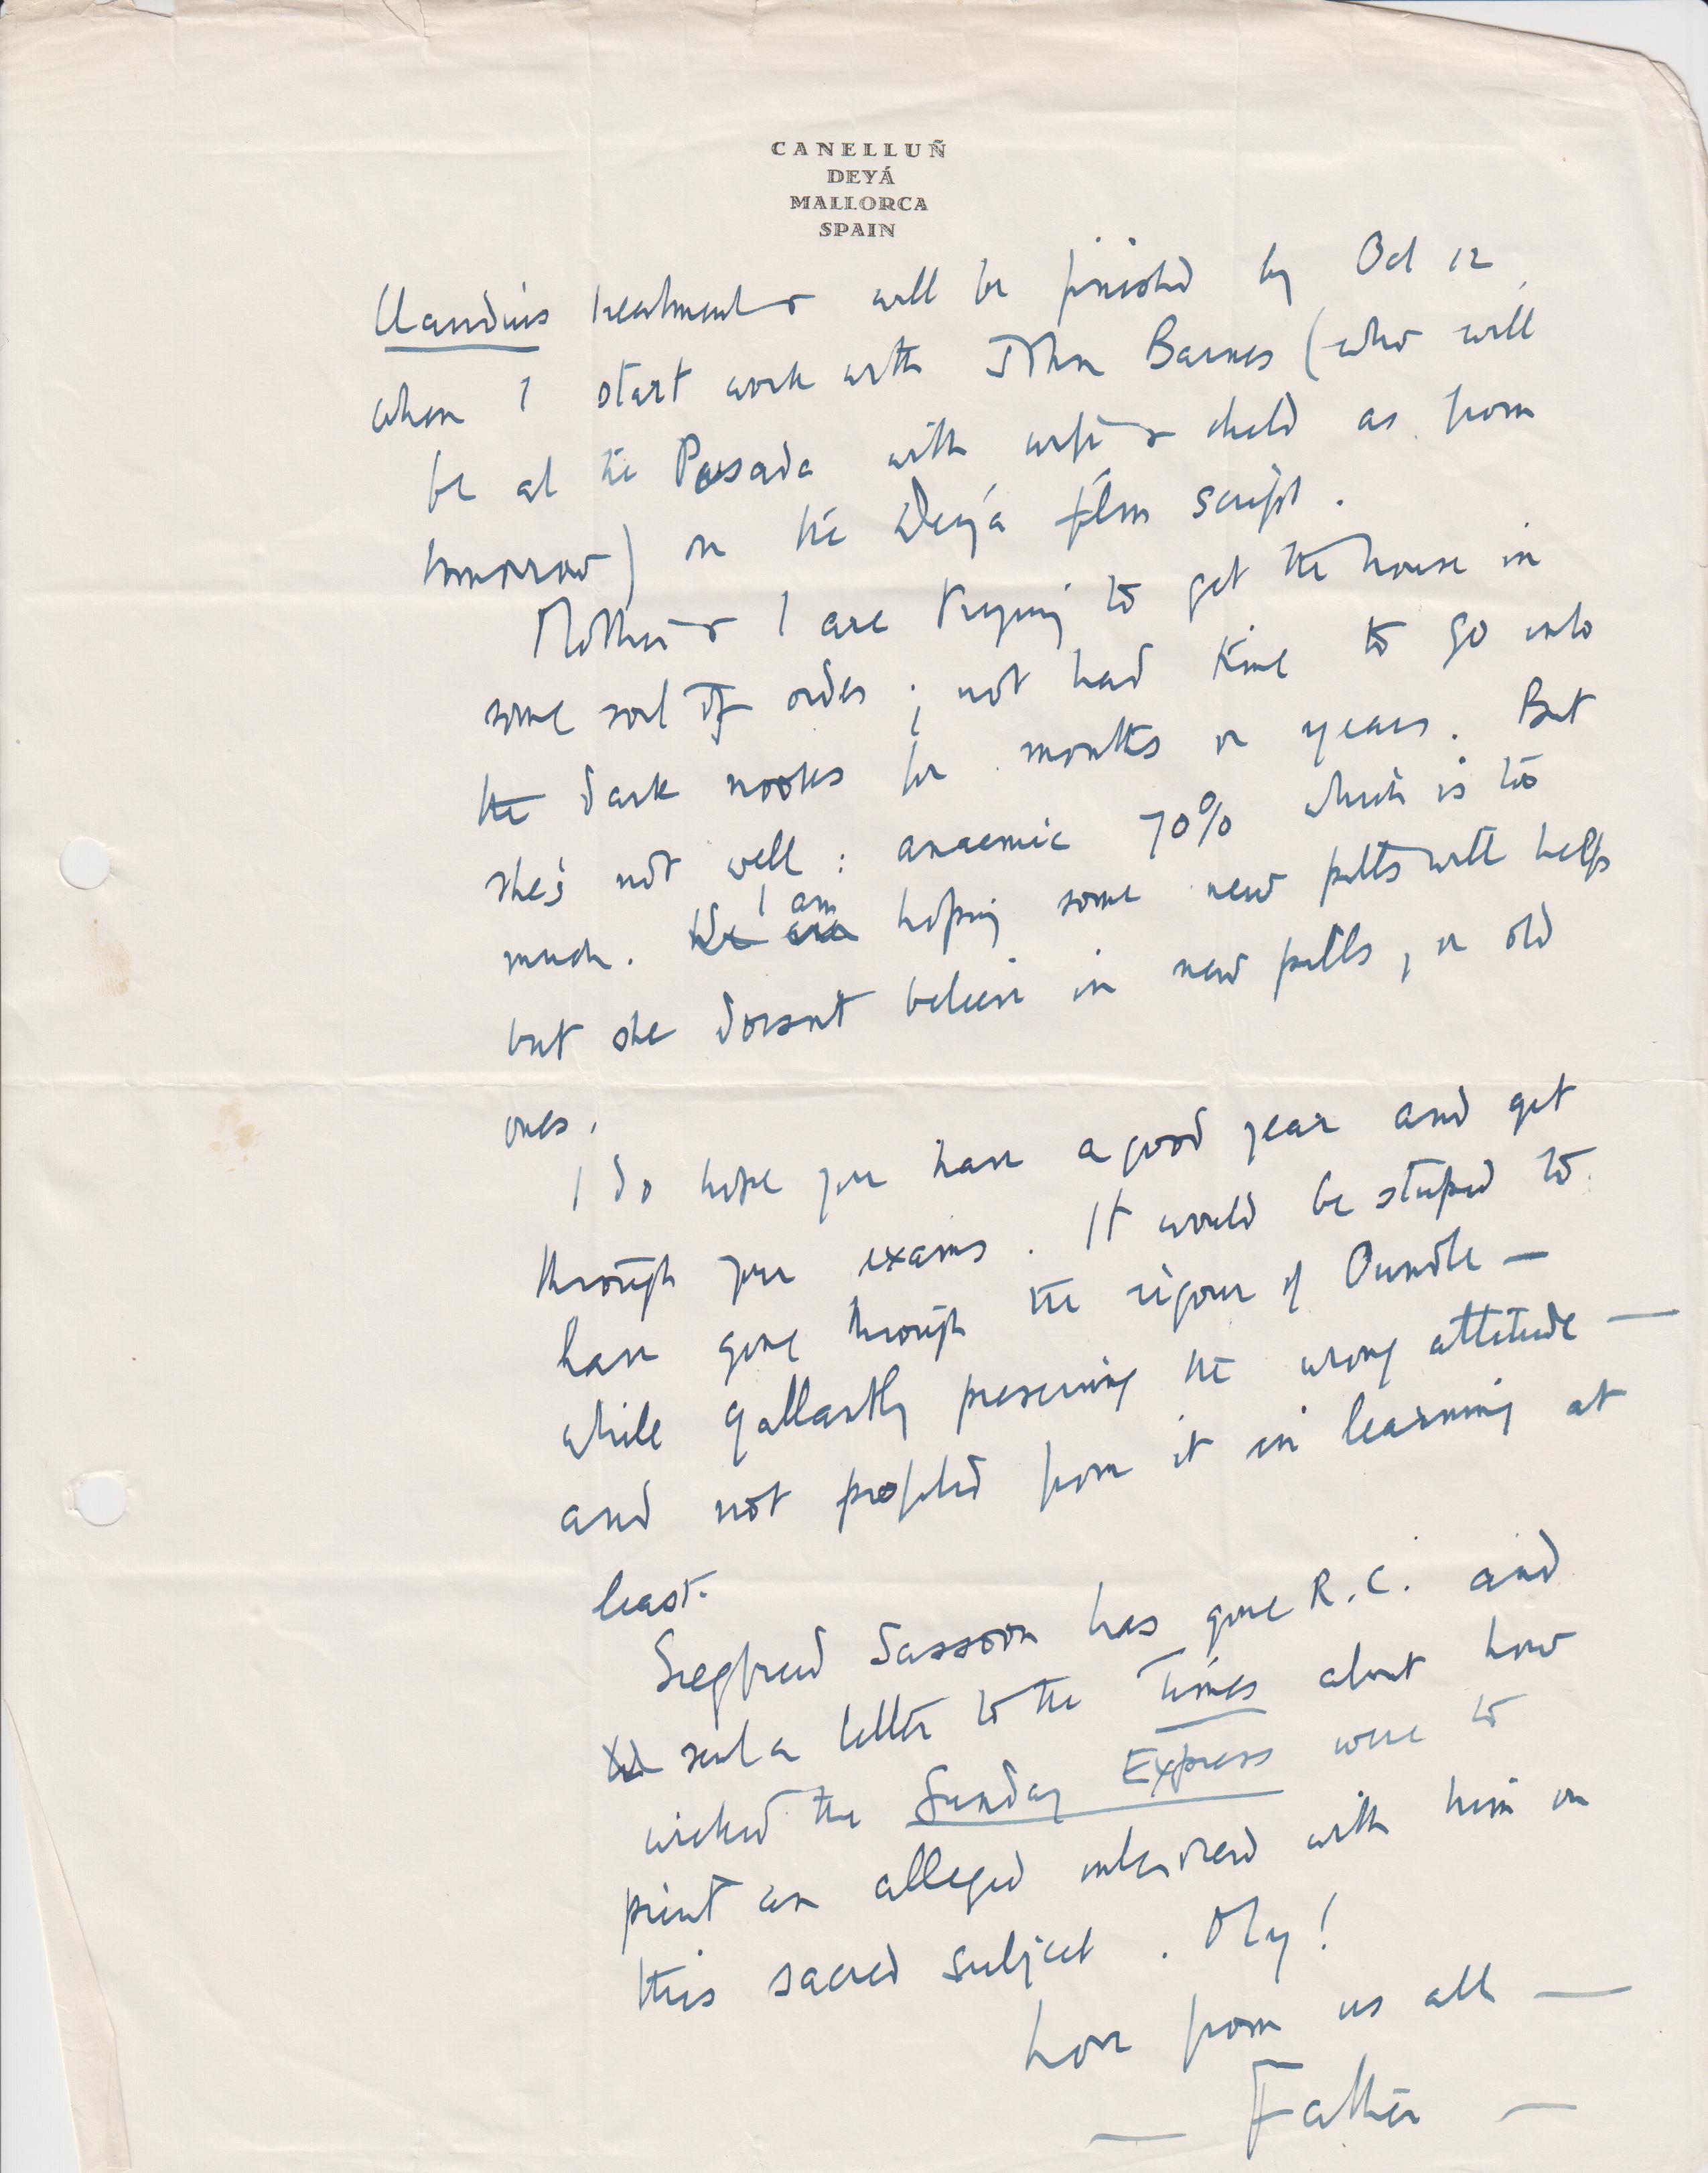 CANELLUÑ
DEYÁ
MALLORCA
SPAIN
Claudius treatment will be finished by Oct 12,
when I start work with John Barnes (who will
be at the Posada with wife & child as from
tomorrow) on the Deyá film script.
Mother & I are trying to get the house in
some sort of order; not had time to go into
the dark nooks for months or years. But
she's not well: anaemic 70% which is too
much. We are I am hoping some new pills will help
but she doesn't believe in new pills, or old
ones.
I do hope you have a good year and get
through your exams. It would be stupid to
have gone through the rigour of Oundle —
while gallantly preserving the wrong attitude —
and not profited from it in learning at
least.
Siegfried Sassoon has gone R.C. and
sent a letter to the Times about how
wicked the Sunday Express were to
print an alleged interview with him on
this sacred subject. My!
Love from us all —
— Father —